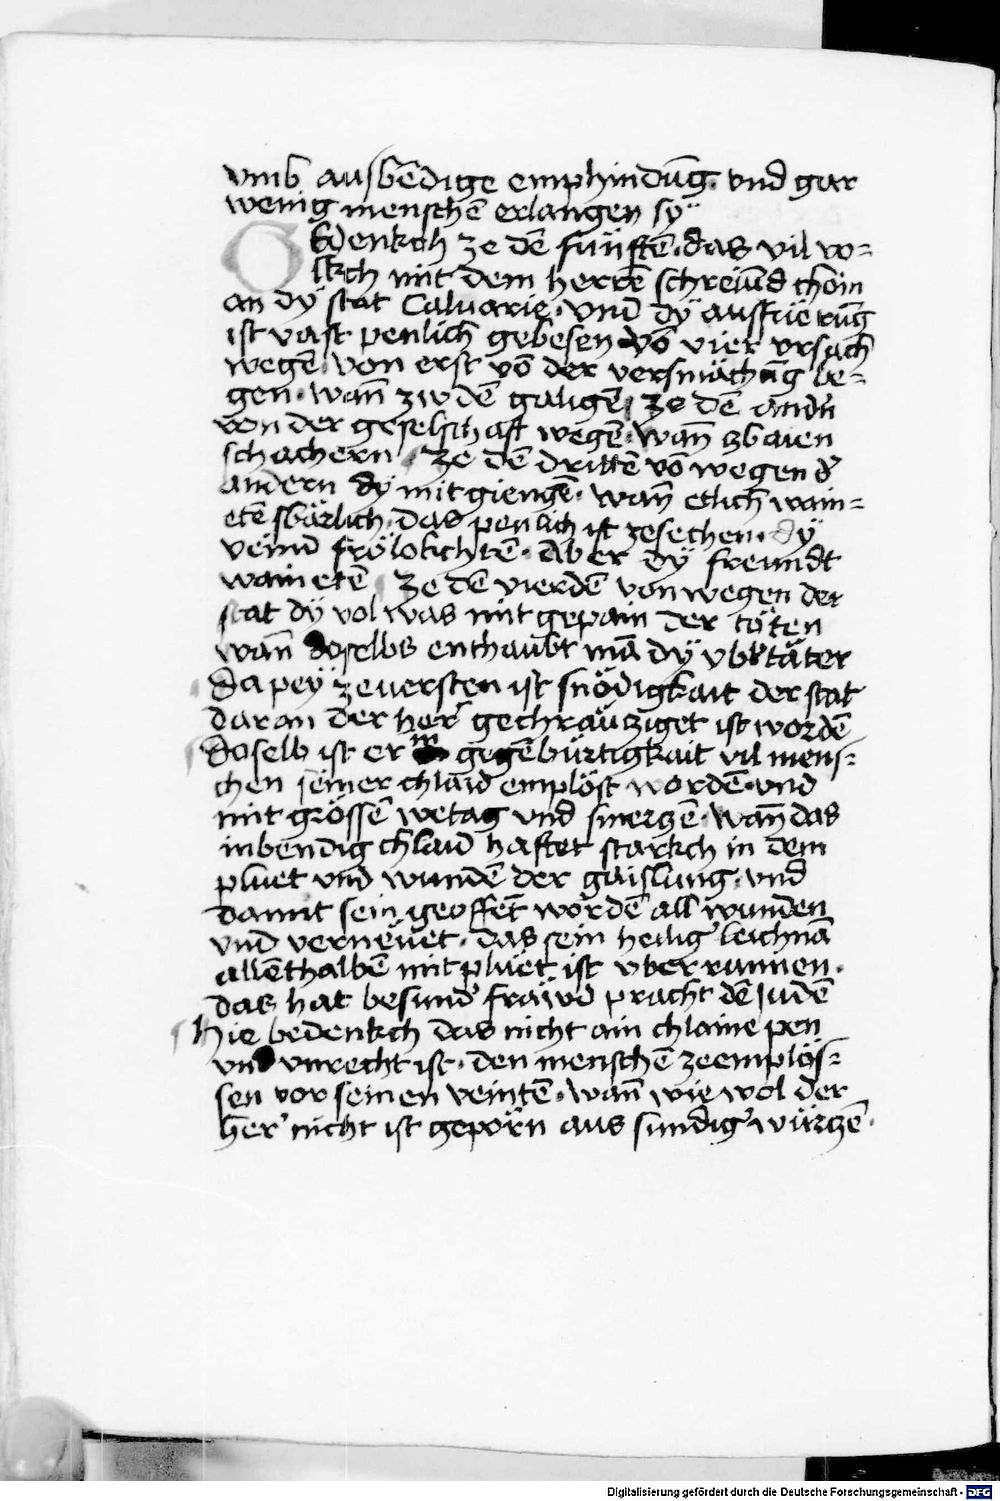 vmb ausbēdige emphindūg. vnd gar
wenig menschē erlangen sÿ
Gedenkch ze dē fünftē. das vil vo=
lkch mit dem herrē schreiūd chom
an dÿ stat Caluarie. vnd dÿ ausfüerūg
ist vast penlich gebesen vō vier vrsach
wegē von erst vō der versmächūg be=
gen. wān zw dē galigē ze dē andn̄
von der geselschaft wegē. wān zbaien
schachern ze dē drittē vō wegen d'
andern dÿ mitgiengē. wān etlich wain=
etē sbärlich. das penlich ist zesechen. dÿ
veind frölokchtē. Aber dÿ freundt
wainetē ze dē vierdē von wegen der
stat dÿ vol was mit gepain der töten
wān doselbs enthaubt mā dÿ vbltäter
Da peÿ zeuersten ist snödigkait der stat
daran der her' gechräuziget ist wordē
doselb ist er in gegēbürtigkait vil mens=
chen seiner chlaid emplöst wordē. vnd
mit grössē wetag vnd smerczē. wān das
inbendig chlaid haftet starkch in dem
pluet vnd wundē der gaislung. vnd
damit sein geoffēt wordē all wunden
vnd verneuet. das sein heilig' leichnā
allēthalbē mit pluet ist vberrunnen.
das hat besund' fräwd pracht dē Judē
Hie bedenkch das nicht ain chlaine pen
vnd vnrecht ist. den menschē zeemplös=
sen vor seinen veintē. wān wie wol der
her' nicht ist geporn aus sundig' würczē.
Digitalisierung gefördert durch die Deutsche Forschungsgemeinschaft - DFG